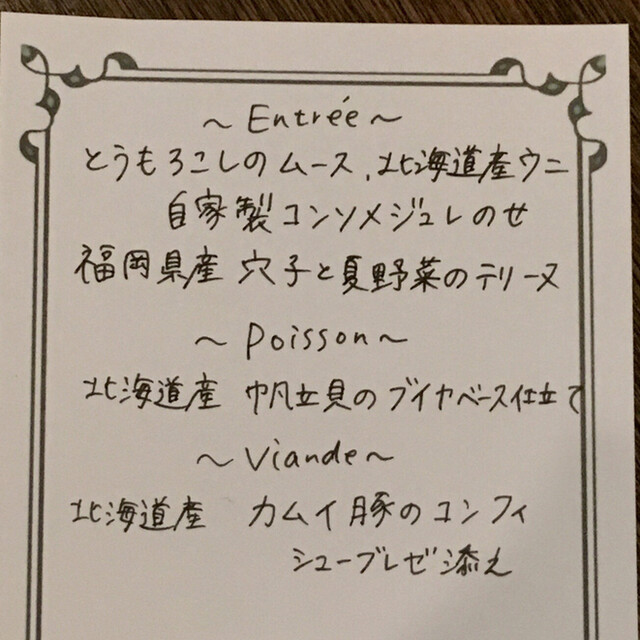 ～Entrée～
とうもろこしのムース、北海道産ウニ
自家製コンソメジュレのせ
福岡県産 穴子と夏野菜のテリーヌ
～Poisson～
北海道産 帆立貝のブイヤベース仕立て
～Viande～
北海道産 カムイ豚のコンフィ
シューブレゼ添え